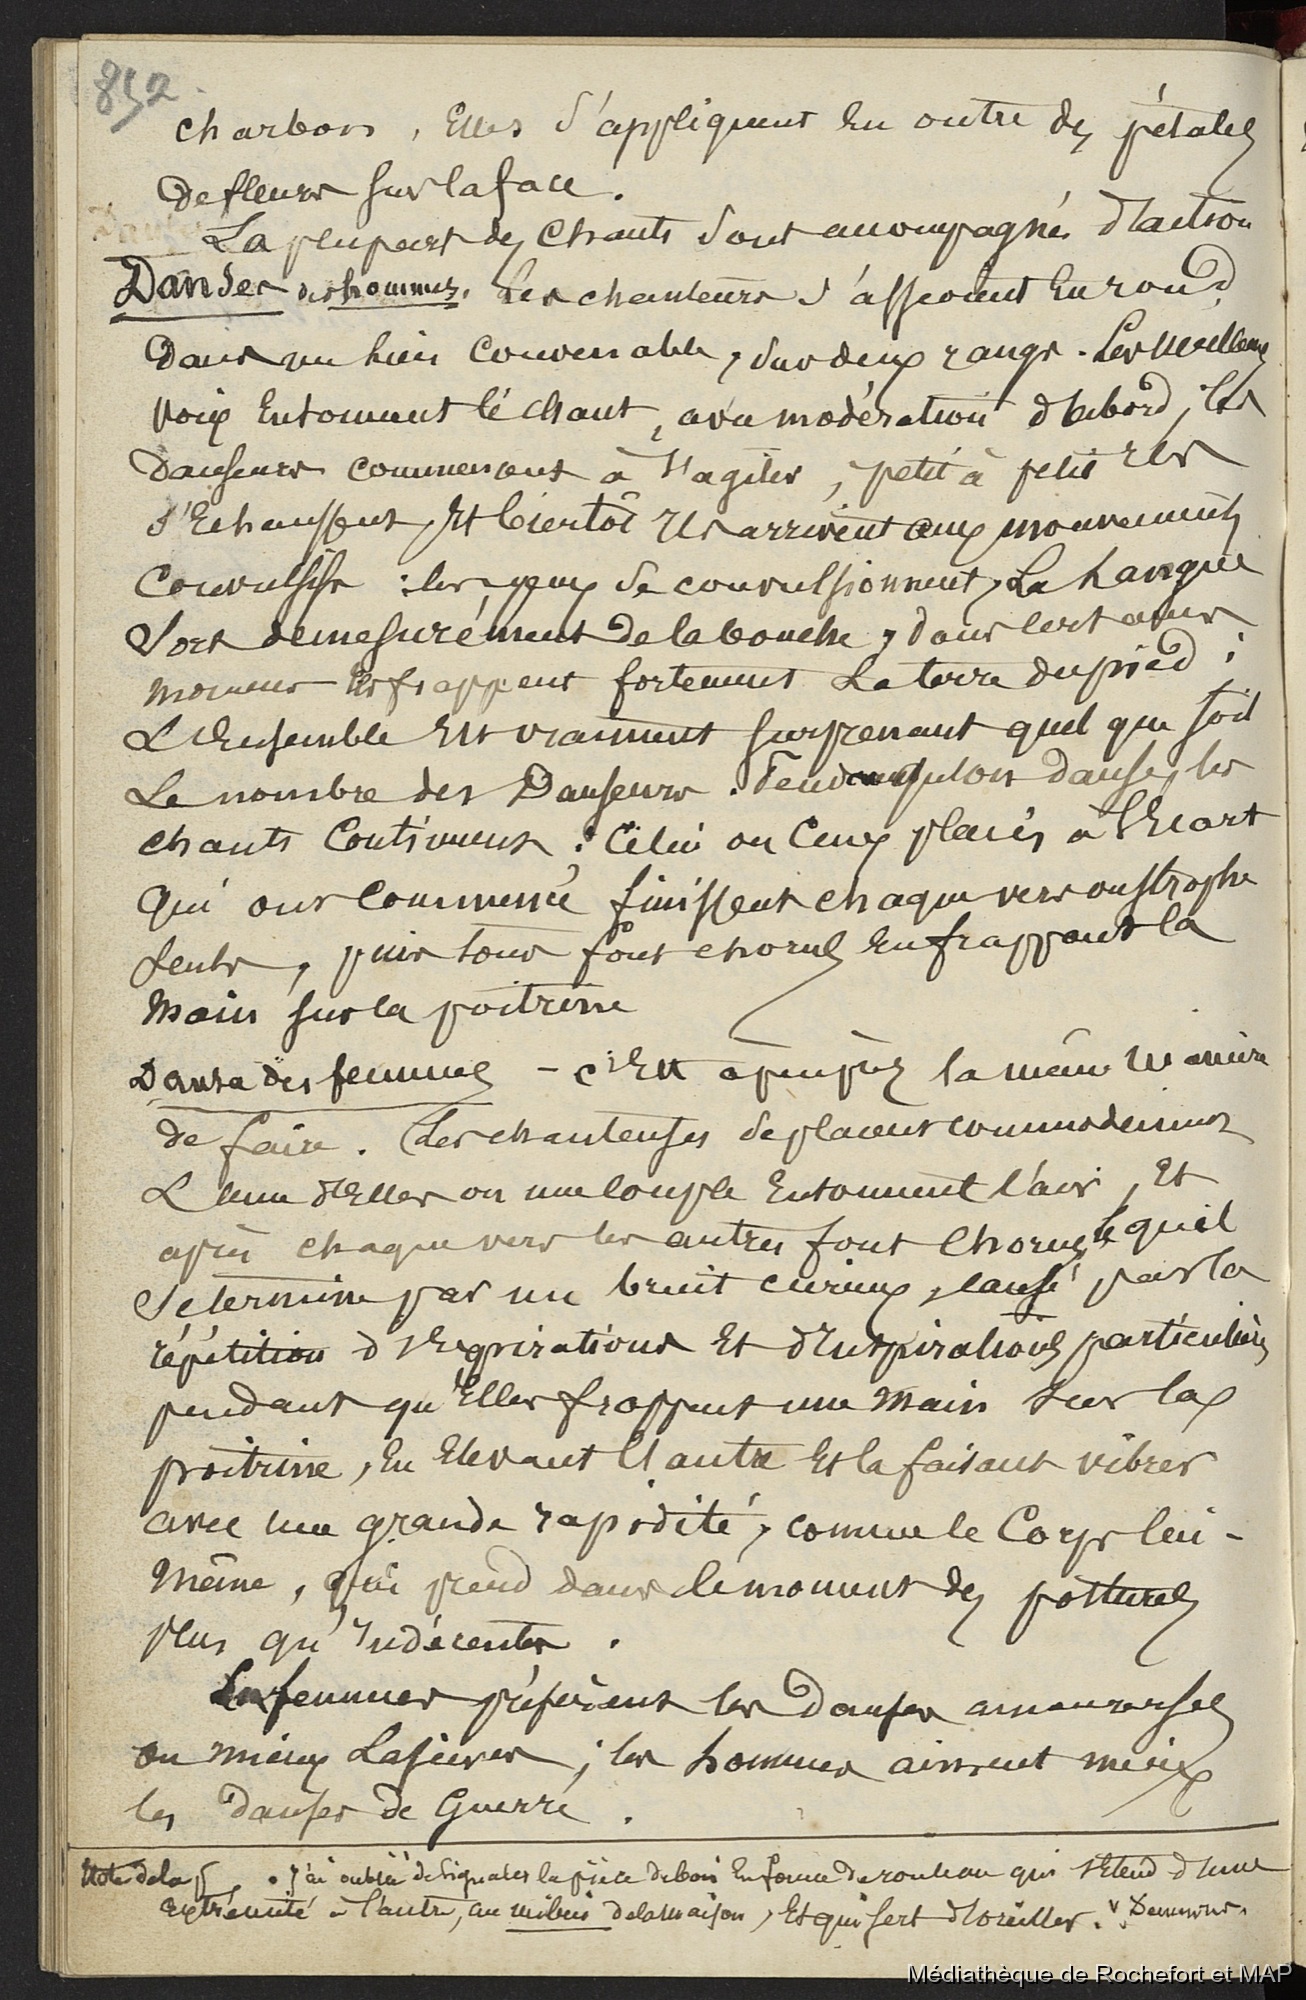 852.
charbon, Elles s'appliquent En outre des pétales
de fleurs sur la face.
La plupart des Chants sont accompagnés d'action
Danses des hommes. Les chanteurs s'asseoient En rond
Dans un lieu convenable, sur deux rangs. Les meilleures
voix Entonnent le chant, avec modération d'abord, les
Danseurs commencent à s'agiter, petit à petit Ils
s'Echauffent, Et bientôt Ils arrivent aux mouvements
Convulsifs : les yeux se convulsionnent, La langue
Sort demesurément de la bouche, dans certains
moments Ils frappent fortement La terre du pied ;
L'Ensemble Est vraiment surprenant quel que soit
Le nombre des Danseurs. Tendant qu'on danse, les
chants Continuent ; Celui ou Ceux placés à l'Ecart
Qui ont Commencé finissent chaque vers ou strophe
seuls, puis tous font chorus En frappant la
main sur la poitrine
Danse des femmes - c'Est à peu près la même manière
de faire. Les chanteuses se placent commodement
L'une d'Elles ou une couple Entonnent l'air, Et
après chaque vers les autres font Chorus, lequel
se termine par un bruit curieux, causé par la
répétition d'Expirations Et d'Inspirations particulières
pendant qu'Elles frappent une main sur la
poitrine, En Elevant l'autre Et la faisant vibrer
avec une grande rapidité, comme le Corps lui-
Même, qui prend dans le moment des postures
plus qu'Indécentes.
Les femmes préfèrent les Danses amoureuses
ou mieux Lascives ; les hommes aiment mieux
les Danses de Guerre.
Note de la p. . J'ai oublié de signaler la pièce de bois En forme de rouleau qui s'Etend d'une
extrémité à l'autre, au milieu de la maison, Et qui sert d'oreiller. V.
Médiathèque de Rochefort et MAP